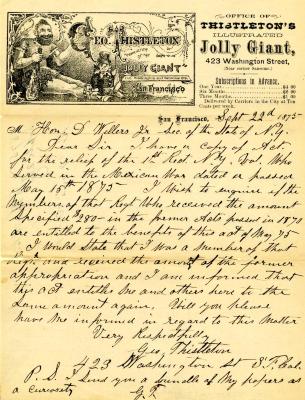 GEO. THISTLETON
JOLLY GIANT
San Francisco
OFFICE OF
THISTLETON'S
ILLUSTRATED
Jolly Giant,
423 Washington Street,
Subscriptions in Advance.
One Year
Six Months
Three Months
Delivered by Carriers in the City at Ten
Cents per week.
San Francisco, Sept 22d 1875
M. Hon. D. Willers Jr Sec. of the State of N.Y.
Dear Sir I have a copy of Act.
for the relief of the 1st Regt. N.Y. Vol. Who
served in the Mexican War dated or passed
May 15th 1875 I Wish to enquire if the
Members of that Regt Who received the amount
specified 280- in the former Acts passed in 187
are entitled to the benefits of this act of May 75
I Would State that I was a Member of that
Regt and received the amount of the former
appropriation and I am informed that
this act entitles me and others here to the
same amount again. Will you please
have me informed in regard to this Matter
Very Respectfully
Geo. Thistleton
423 Washington St S.F. Cal.
P.S. I send you a bundle of My papers as
a curiosity G.T